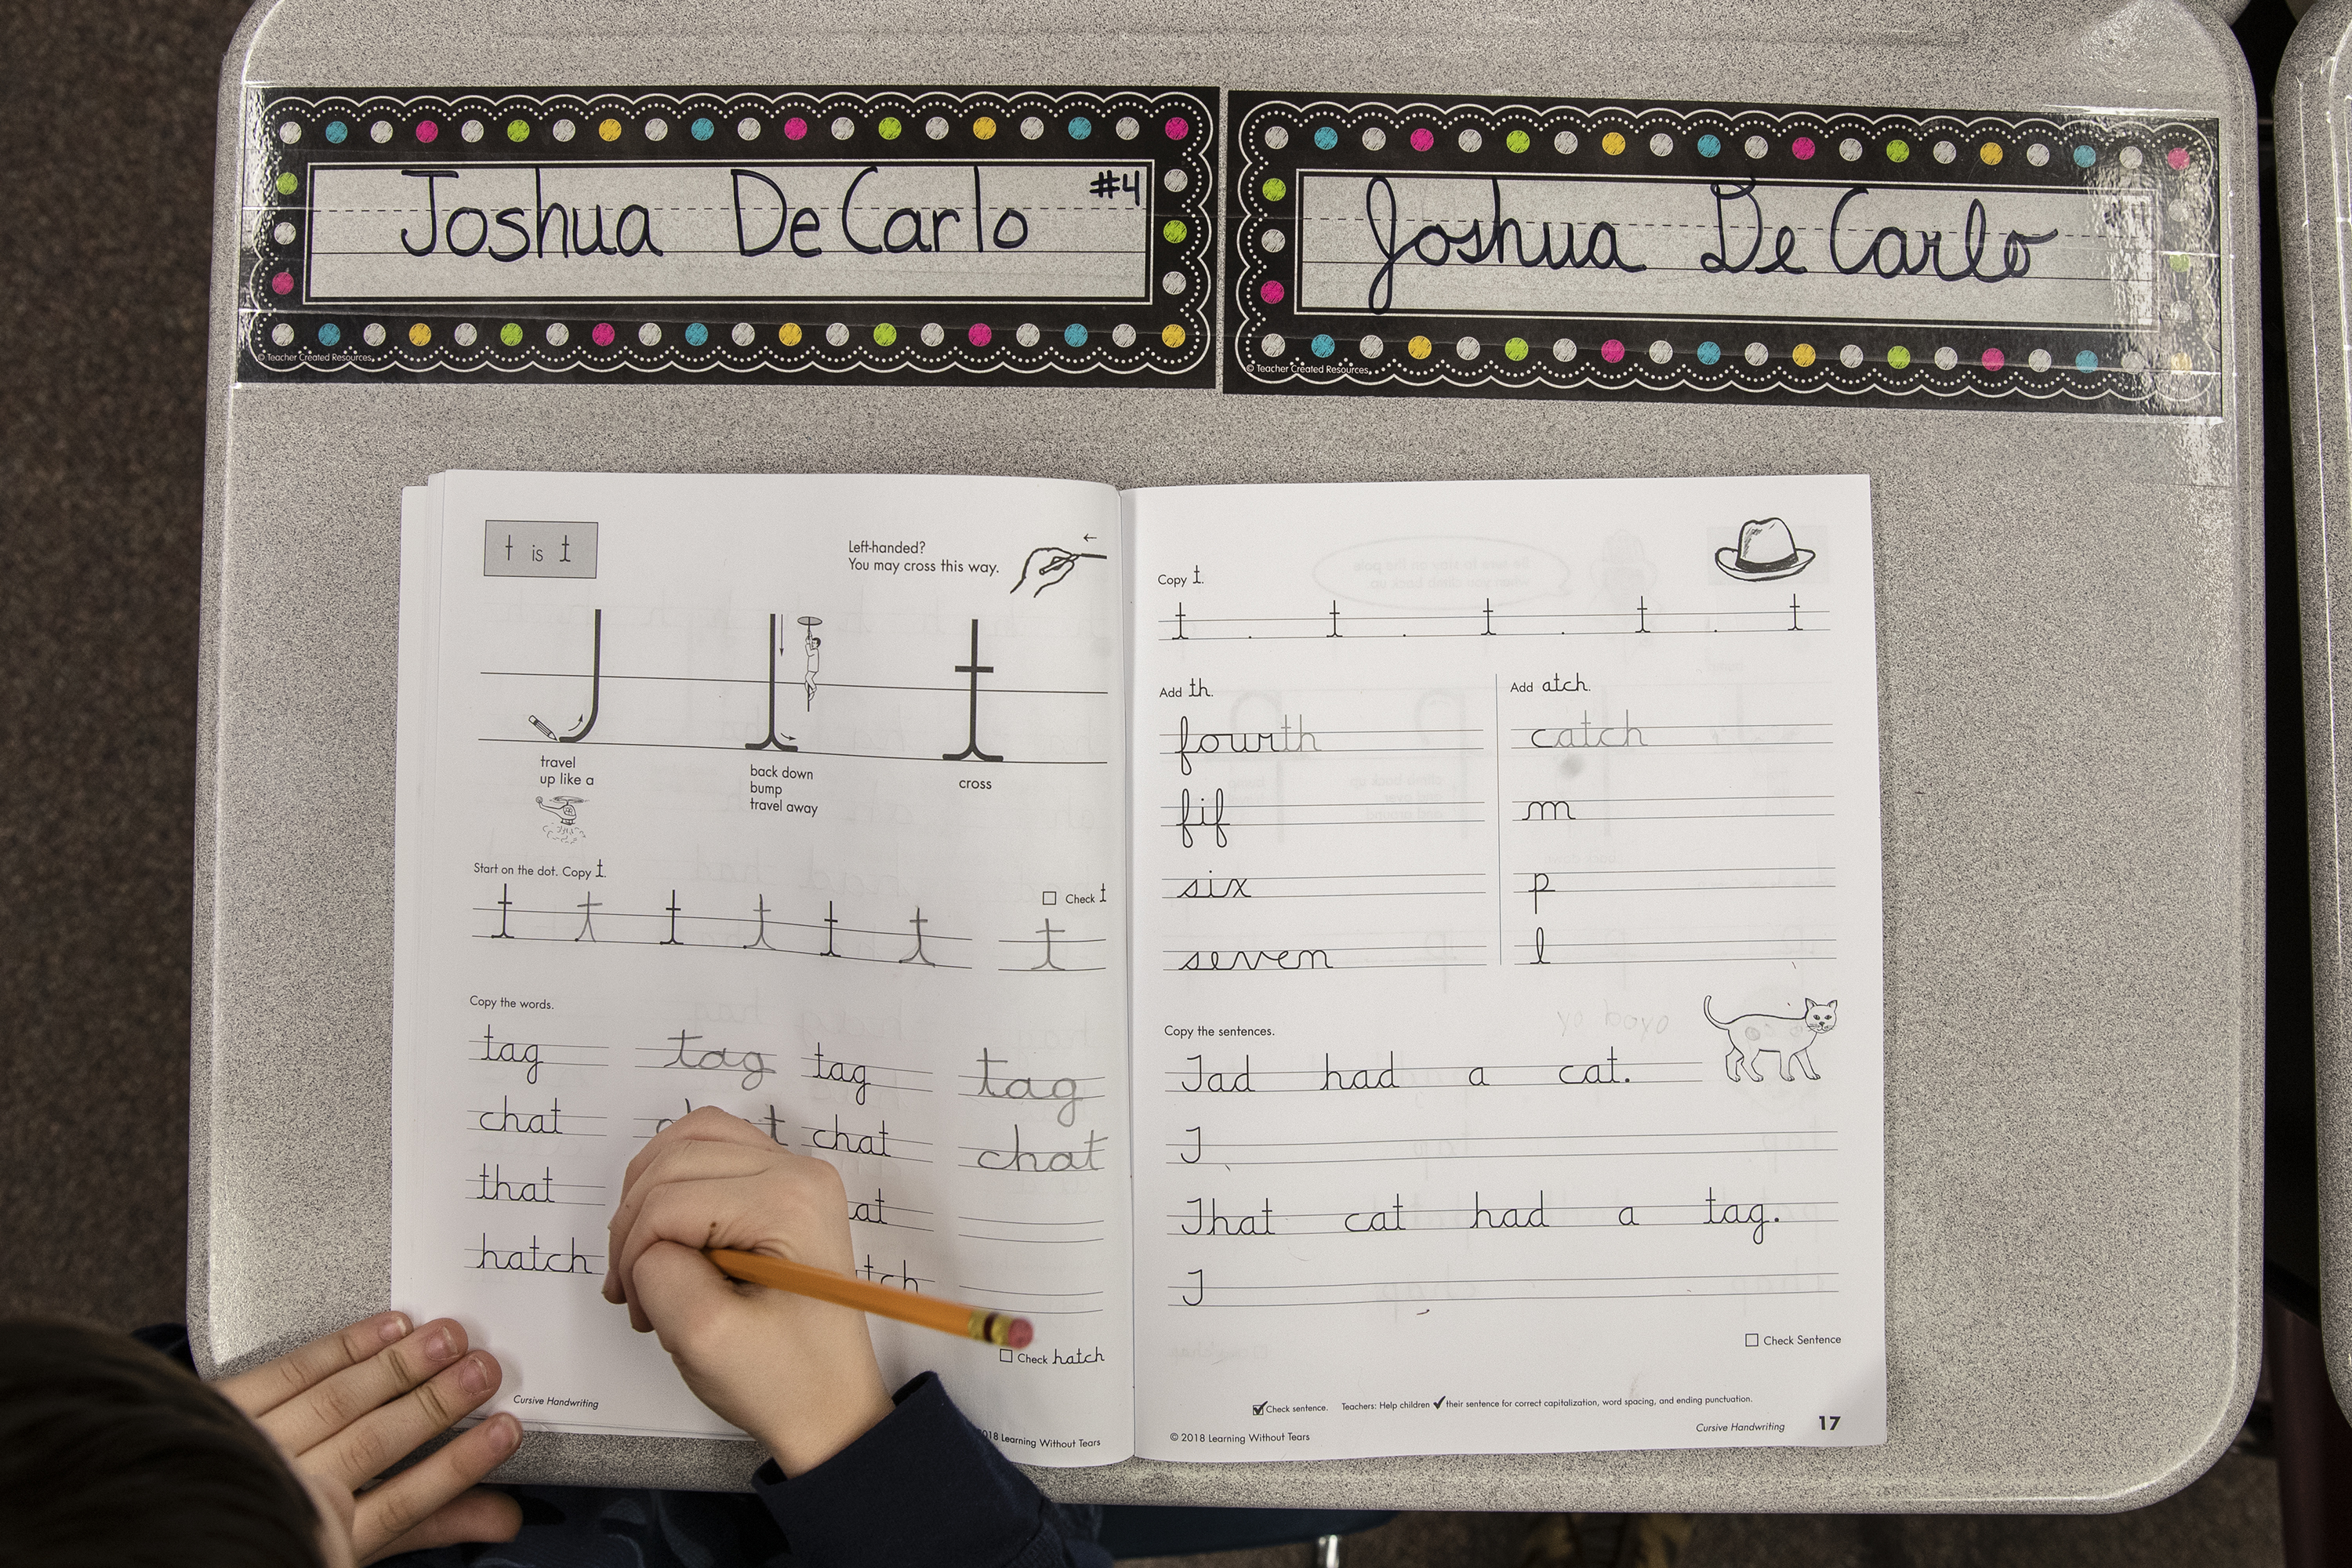 Joshua DeCarlo #4
© Teacher Created Resources
Joshua DeCarlo
© Teacher Created Resources
t is t
Left-handed?
You may cross this way.
travel
up like a
back down
bump
travel away
cross
Start on the dot. Copy t.
Check t
t t t t t t t
Copy the words.
tag tag tag tag
chat chat chat
that at
hatch tch
Check hatch
Cursive Handwriting
2018 Learning Without Tears
Copy t.
t . t . t . t . t
Add th.
fourth
fif
six
seven
Add atch.
catch
m
p
l
Copy the sentences.
Tad had a cat.
T
That cat had a tag.
T
Check Sentence
Check sentence. Teachers: Help children ✓ their sentence for correct capitalization, word spacing, and ending punctuation.
© 2018 Learning Without Tears
Cursive Handwriting 17